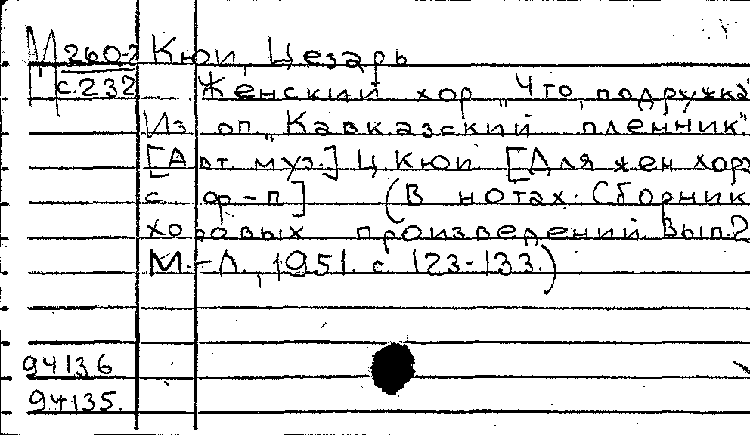 М 260-2 Кюи, Цезарь
с.232 Женский хор „Что, подружка"
Из оп. „Кавказский пленник".
[Авт. муз.] Ц. Кюи [Для жен хора
с ф-п] (В нотах: Сборник
хоровых произведений. Вып.2
М.-Л., 1951. с 123-133.)
94136
94135.